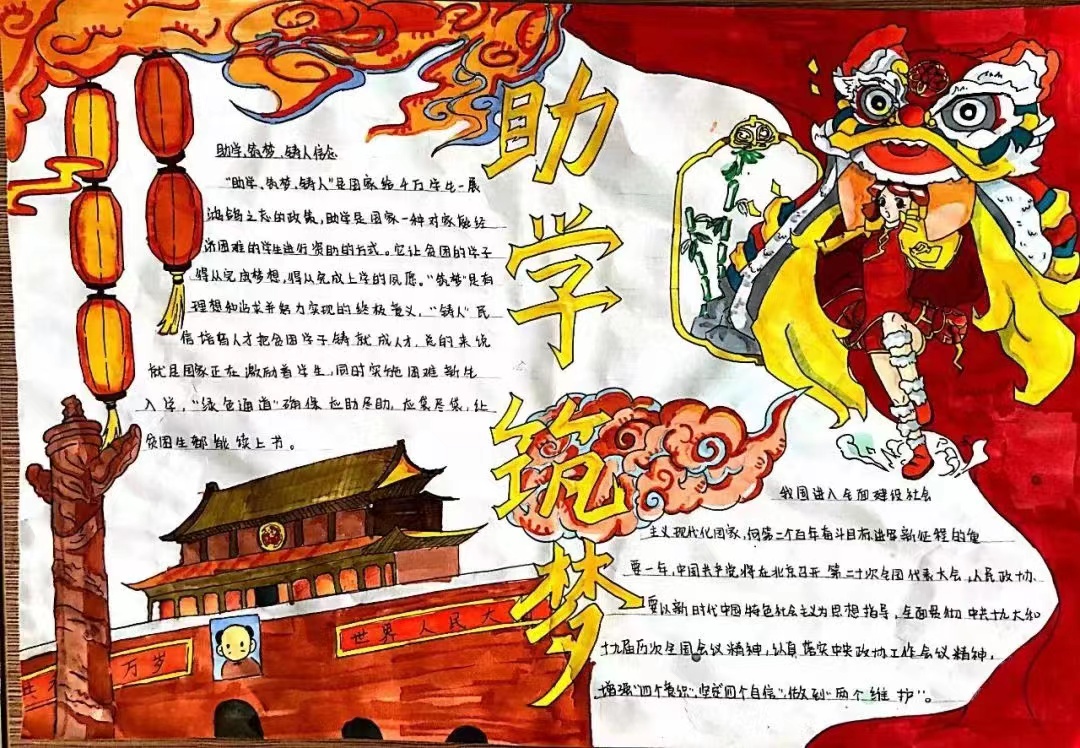 助学筑梦
助学、筑梦、铸人信念
"助学、筑梦、铸人"是国家给千万学生一展
鸿鹄之志的政策，助学是国家一种对家庭经
济困难的学生进行资助的方式。它让贫困的学子
得以完成梦想，得以完成上学的夙愿。"筑梦"是有
理想和追求并努力实现的终极意义，"铸人"
培育人才把贫困学子铸就成人才，总的来说
就是国家正在激励着学生，同时实施困难新生
入学，"绿色通道"确保应助尽助，应贷尽贷，让
贫困生都能读上书。
万岁
世界人民大
我国进入全面建设社会
主义现代化国家，向第二个百年奋斗目标进军新征程的重
要一年，中国共产党将在北京召开第二十次全国代表大会，人民政协
要以新时代中国特色社会主义为思想指导，全面贯彻中共十九大和
十九届历次全国会议精神，认真落实中央政协工作会议精神，
增强"四个意识"，坚定"四个自信"，做到"两个维护"。